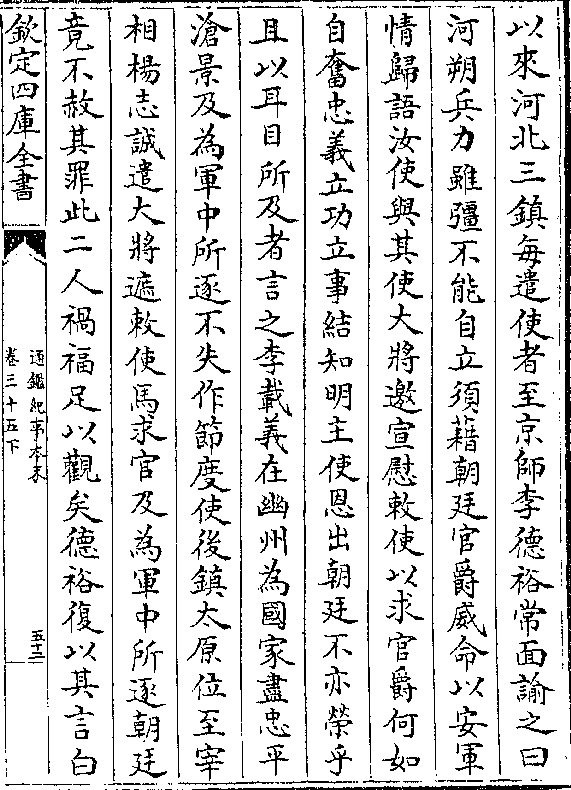 以來河北三鎮每遣使者至京師李德裕常面諭之曰
河朔兵力雖彊不能自立須藉朝廷官爵威命以安軍
情歸語汝使與其使大將邀宣慰敕使以求官爵何如
自奮忠義立功立事結知明主使恩出朝廷不亦榮乎
且以耳目所及者言之李載義在幽州為國家盡忠平
滄景及為軍中所逐不失作節度使後鎮太原位至宰
相楊志誠遣大將遮敕使馬求官及為軍中所逐朝廷
竟不赦其罪此二人禍福足以觀矣德裕復以其言白
欽定四庫全書
通鑑紀事本末
卷三十五下
五十二